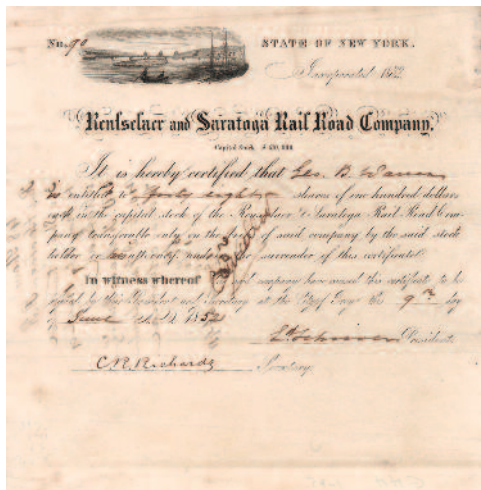 No. 90
STATE OF NEW YORK.
Incorporated 1832
Rensselaer and Saratoga Rail Road Company.
Capital Stock
It is hereby certified that Geo. B. Warren
is entitled to forty eight shares of one hundred dollars
each in the capital stock of the Rensselaer & Saratoga Rail Road Com-
pany transferable only on the books of said company by the said stock
holder or attorney on the surrender of this certificate
In witness whereof the said company have caused this certificate to be
signed by their President and Secretary at the City of Troy this 9th day
of June A.D. 1852
President.
C. R. Richards Secretary.